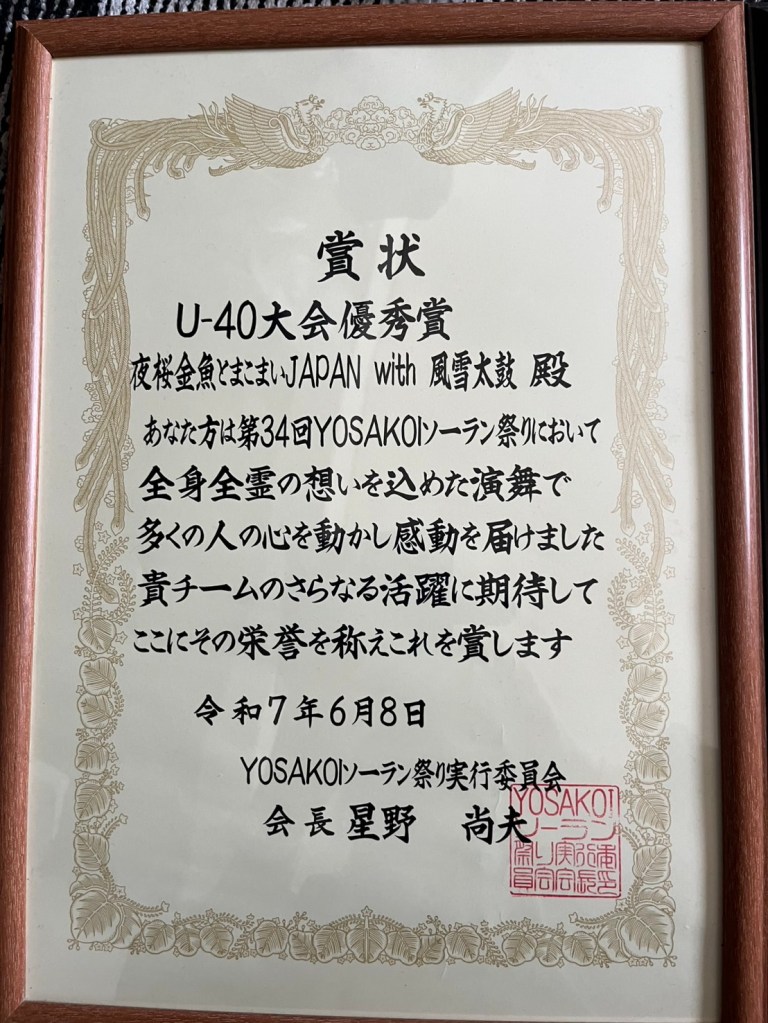 賞状
U-40大会優秀賞
夜桜金魚とまこまいJAPAN with 風雪太鼓 殿
あなた方は第34回YOSAKOIソーラン祭りにおいて
全身全霊の想いを込めた演舞で
多くの人の心を動かし感動を届けました
貴チームのさらなる活躍に期待して
ここにその栄誉を称えこれを賞します
令和7年6月8日
YOSAKOIソーラン祭り実行委員会
会長 星野 尚夫
YOSAKOI
ソーラン
祭り実行委
員会会長印